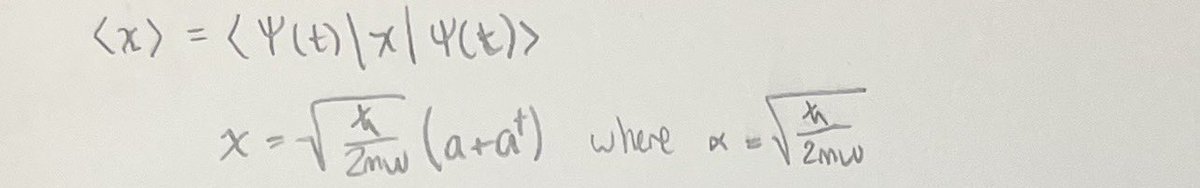 ⟨x⟩ = ⟨Ψ(t)|x|Ψ(t)⟩
x = √(ħ/2mω) (a+a†) where α = √(ħ/2mω)